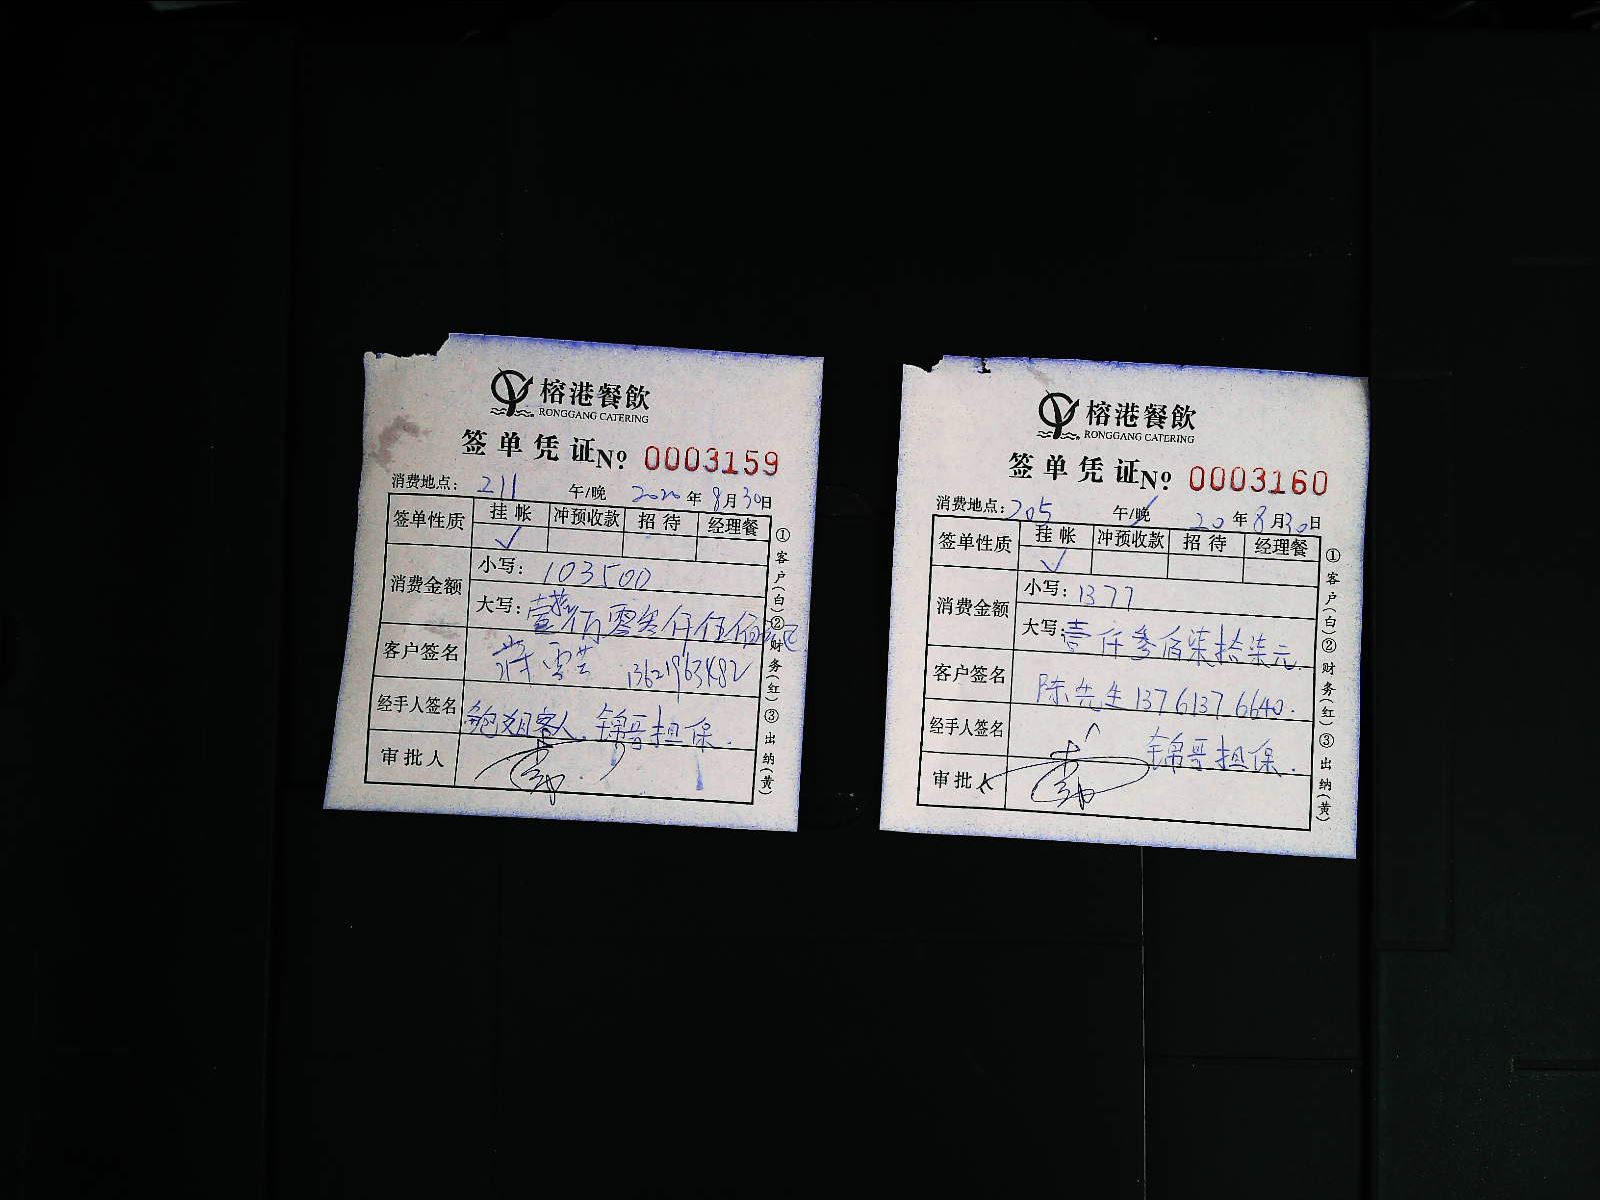 榕港餐飲
RONGGANG CATERING
签单凭证 No 0003159
消费地点: 211 午/晚 2020年8月30日
签单性质 挂帐 冲预收款 招待 经理餐
✓
消费金额 小写: 103500
大写: 壹拾万零叁仟伍佰元
客户签名 蒋雪芸 13621963482
经手人签名 鲍姐客人. 锦哥担保.
审批人
①客户(白)②财务(红)③出纳(黄)
榕港餐飲
RONGGANG CATERING
签单凭证 No 0003160
消费地点: 205 午/晚 20年8月30日
签单性质 挂帐 冲预收款 招待 经理餐
✓
消费金额 小写: 1377
大写: 壹仟叁佰柒拾柒元.
客户签名 陈先生 13761376640.
经手人签名 锦哥担保.
审批人
①客户(白)②财务(红)③出纳(黄)